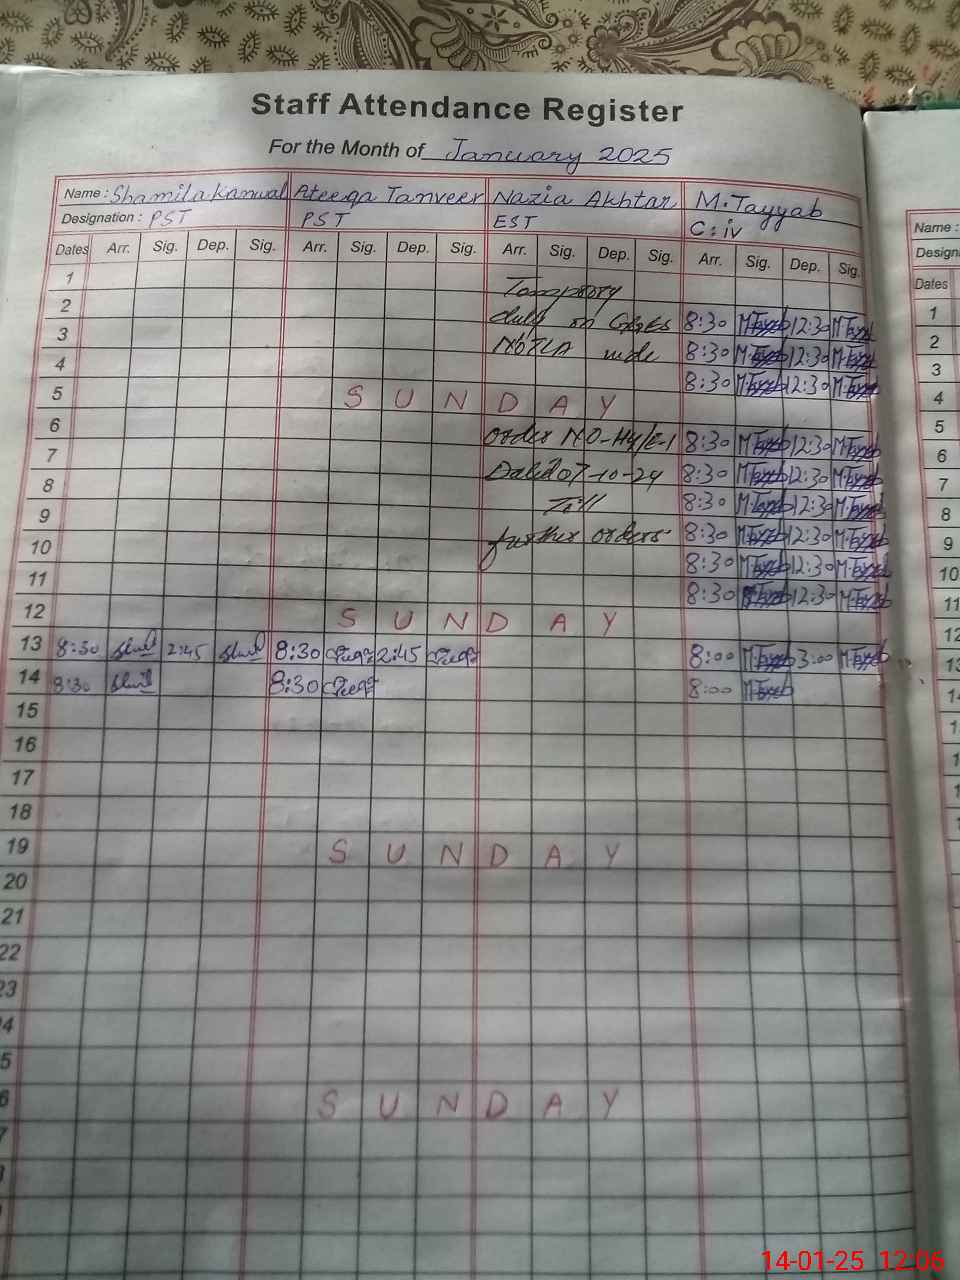 Staff Attendance Register
For the Month of January 2025
Name : Shamila Kanwal Ateeqa Tanveer Nazia Akhtar M. Tayyab
Designation : PST PST EST C: iv
Dates Arr. Sig. Dep. Sig. Arr. Sig. Dep. Sig. Arr. Sig. Dep. Sig. Arr. Sig. Dep. Sig.
1
2 8:30 M.Tayyab 12:30 M.Tayyab
3 8:30 M.Tayyab 12:30 M.Tayyab
4 8:30 M.Tayyab 12:30 M.Tayyab
5 SUNDAY
6 order NO-H4/E-1 8:30 M.Tayyab 12:30 M.Tayyab
7 Dated 07-10-24 8:30 M.Tayyab 12:30 M.Tayyab
8 Till 8:30 M.Tayyab 12:30 M.Tayyab
9 further orders 8:30 M.Tayyab 12:30 M.Tayyab
10 8:30 M.Tayyab 12:30 M.Tayyab
11 8:30 M.Tayyab 12:30 M.Tayyab
12 SUNDAY
13 8:30 2:45 8:30 2:45 8:00 M.Tayyab 3:00 M.Tayyab
14 8:30 8:30 8:00 M.Tayyab
15
16
17
18
19 SUNDAY
20
21
22
23
4
5
6 SUNDAY
Name :
Dates
1
2
3
4
5
6
7
8
9
10
11
12
14-01-25 12:06